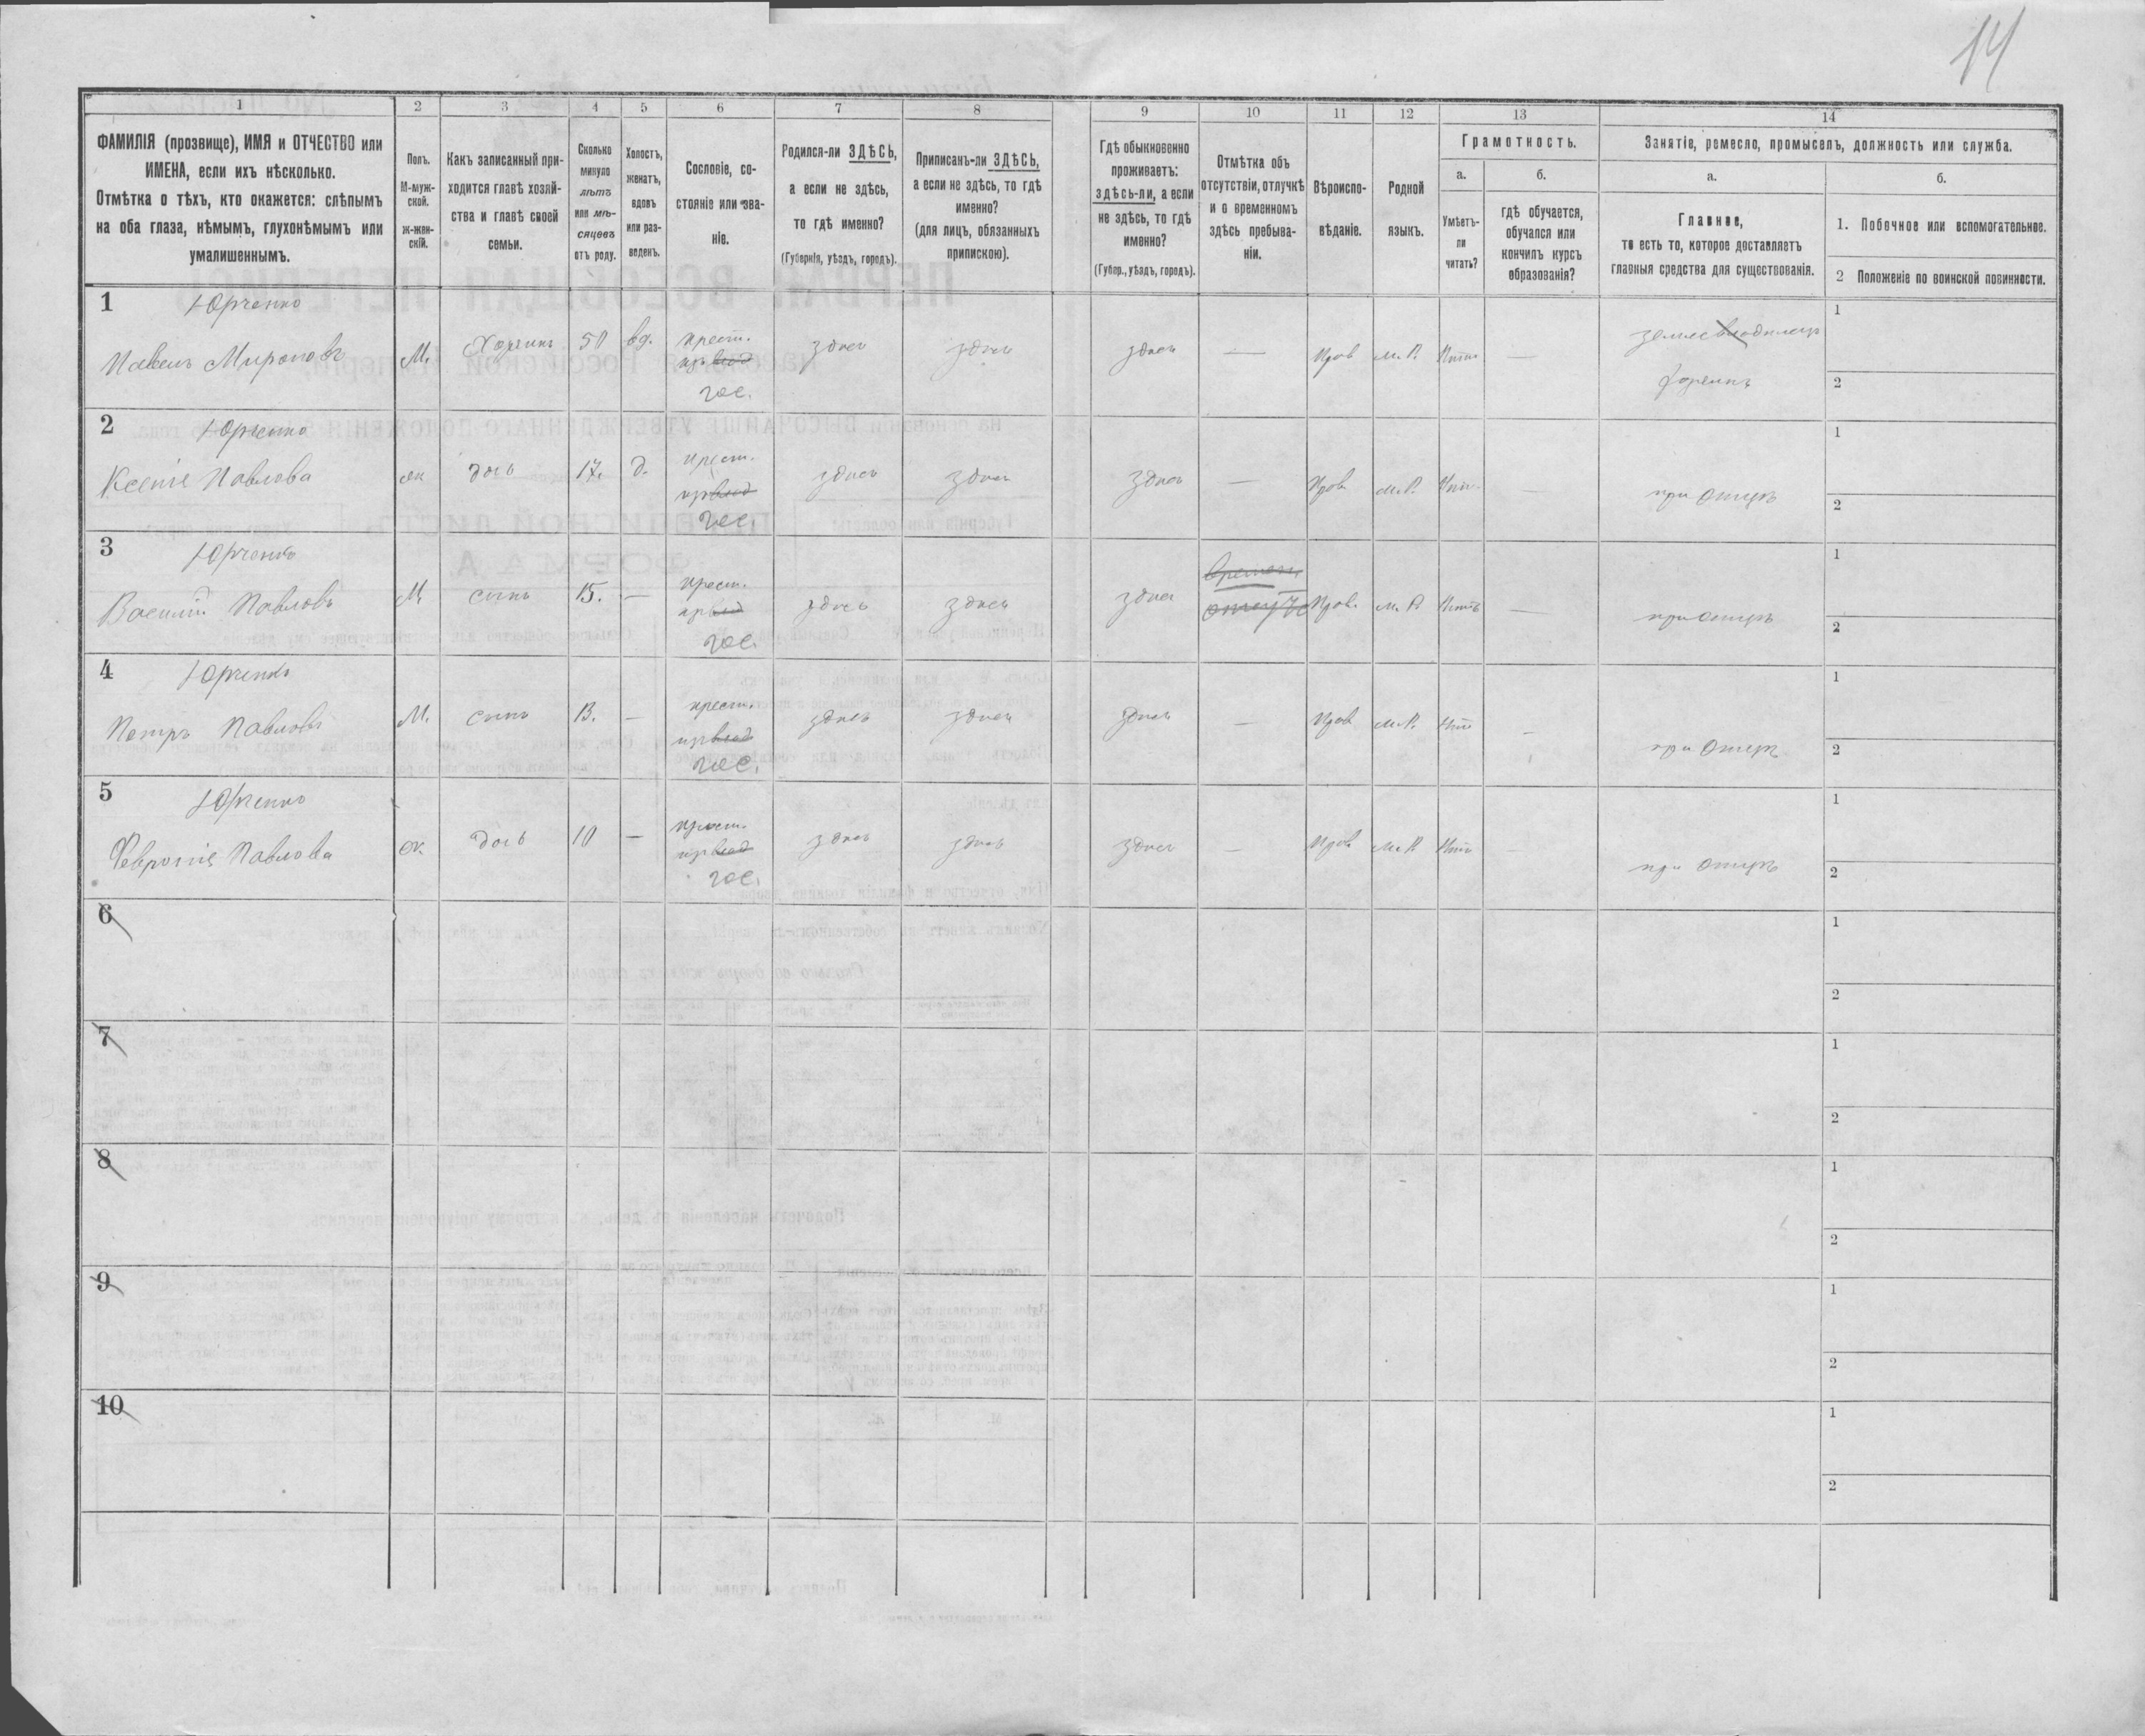 14
1 2 3 4 5 6 7 8 9 10 11 12 13 14
ФАМИЛІЯ (прозвище), ИМЯ и ОТЧЕСТВО или
ИМЕНА, если ихъ нѣсколько.
Отмѣтка о тѣхъ, кто окажется: слѣпымъ
на оба глаза, нѣмымъ, глухонѣмымъ или
умалишеннымъ.
Полъ.
М-муж-
ской.
ж-жен-
скій.
Какъ записанный при-
ходится главѣ хозяй-
ства и главѣ своей
семьи.
Сколько
минуло
лѣтъ
или мѣ-
сяцевъ
отъ роду.
Холостъ,
женатъ,
вдовъ
или раз-
веденъ.
Сословіе, со-
стояніе или зва-
ніе.
Родился-ли ЗДѢСЬ,
а если не здѣсь,
то гдѣ именно?
(Губернія, уѣздъ, городъ).
Приписанъ-ли ЗДѢСЬ,
а если не здѣсь, то гдѣ
именно?
(для лицъ, обязанныхъ
припискою).
Гдѣ обыкновенно
проживаетъ:
здѣсь-ли, а если
не здѣсь, то гдѣ
именно?
(Губер., уѣздъ, городъ).
Отмѣтка объ
отсутствіи, отлучкѣ
и о временномъ
здѣсь пребыва-
ніи.
Вѣроиспо-
вѣданіе.
Родной
языкъ.
Грамотность.
а.
Умѣетъ-
ли
читать?
б.
гдѣ обучается,
обучался или
кончилъ курсъ
образованія?
Занятіе, ремесло, промыселъ, должность или служба.
а.
Главное,
то есть то, которое доставляетъ
главныя средства для существованія.
б.
1. Побочное или вспомогательное.
2 Положеніе по воинской повинности.
1 Юрченко
Павелъ Мироновъ М. Хозяинъ 50 вд. крест. гос. здесь здесь здесь — Прав м.Р. — хозяинъ
1
2
2 Юрченко
Ксенія Павлова ж дочь 17. д. крест. гос. здесь здесь здесь — Прав м.Р. — при отцѣ
1
2
3 Юрченко
Василій Павловъ М сынъ 15. — крест. гос. здесь здесь здесь Прав. м.Р — при отцѣ
1
2
4 Юрченко
Петръ Павловъ М. сынъ 13. — крест. гос. здесь здесь здесь — Прав м.Р. — при отцѣ
1
2
5 Юрченко
Февронія Павлова ж дочь 10 — крест. гос. здесь здесь здесь — Прав м.Р — при отцѣ
1
2
6
1
2
7
1
2
8
1
2
9
1
2
10
1
2